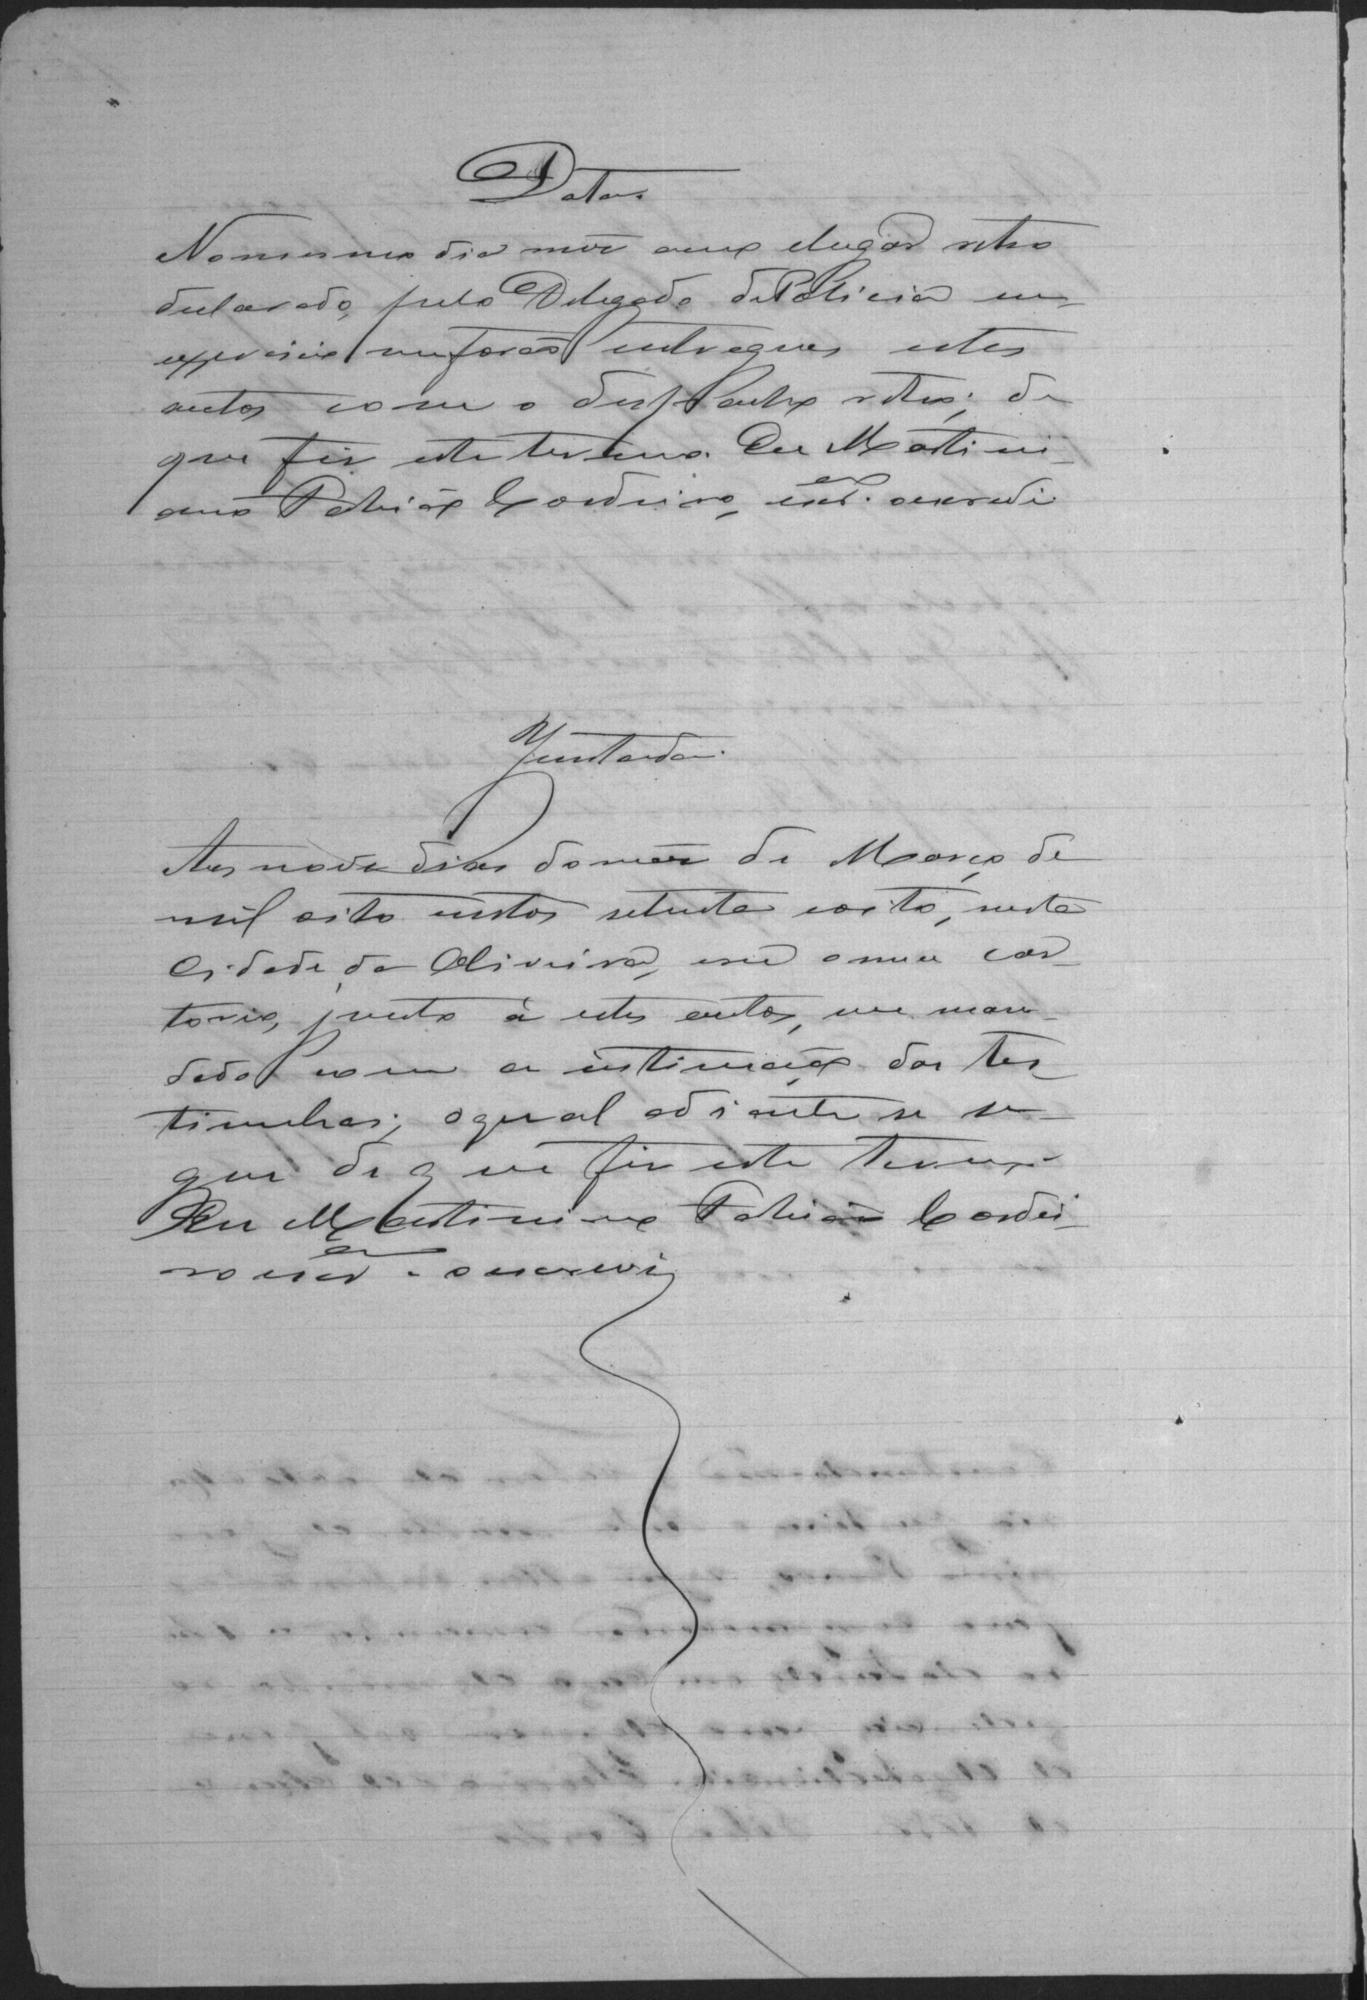 Data
No mesmo dia mez anno e lugar retro
declarado, pelo Delegado de Policia em
exercicio me forão entregues estes
autos com o despacho retro; de
que fiz este termo. Eu Martini-
ano Patricio Cordeiro, escr.am o escrevi
Juntada.
Aos nove dias do mez de Março de
mil oito centos setenta e oito, nesta
Cidade da Oliveira, em o meu car-
torio, junto á estes autos, um man-
dado com a intimação das tes-
timunhas; o qual adiante se se-
gue de que fiz este termo.
Eu Martiniano Patricio Cordei-
ro escr.am o escrevi